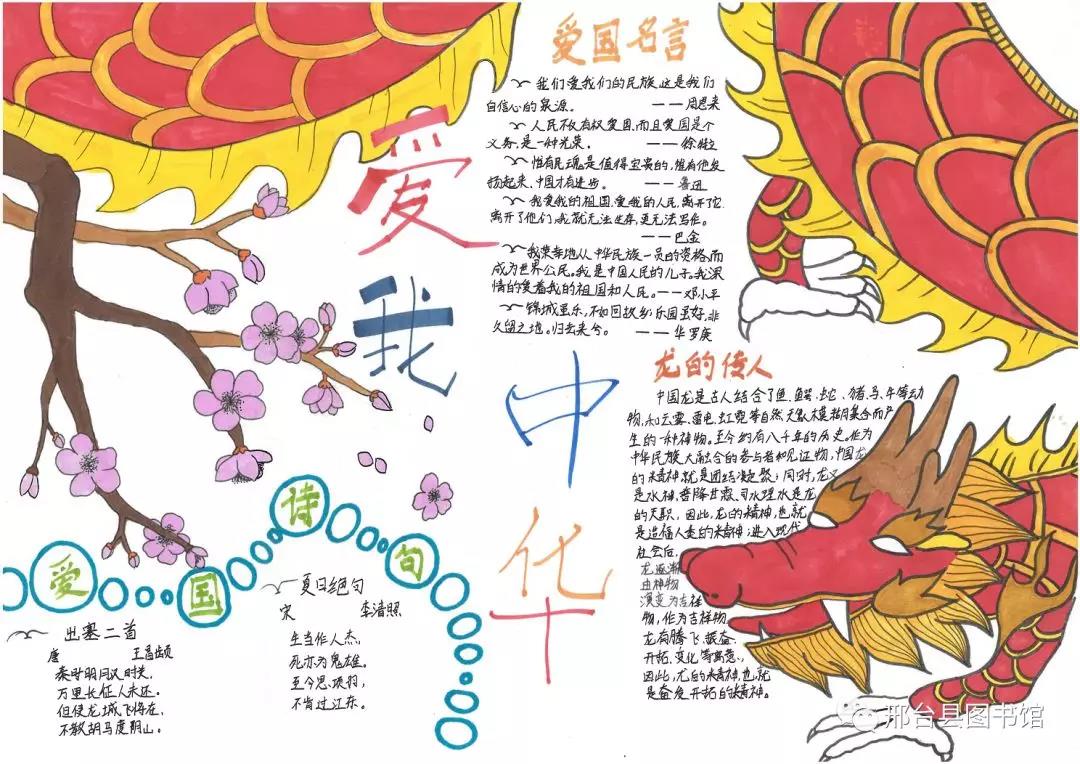 爱我中华
爱国名言
我们爱我们的民族,这是我们
自信心的泉源。 ——周恩来
人民不仅有权爱国,而且爱国是个
义务,是一种光荣。 ——徐特立
惟有民魂是值得宝贵的,惟有他发
扬起来,中国才有进步。 ——鲁迅
我爱我的祖国,爱我的人民,离开了它,
离开了他们,我就无法生存,更无法写作。
——巴金
我荣幸地从中华民族一员的资格,而
成为世界公民。我是中国人民的儿子。我深
情的爱着我的祖国和人民。——邓小平
锦城虽乐,不如回故乡;乐园虽好,非
久留之地。归去来兮。 ——华罗庚
龙的传人
中国龙是古人结合了鱼、鳄、蛇、猪、马、牛等动
物,和云雾、雷电、虹霓等自然天象模糊集合而产
生的一种神物。至今约有八千年的历史。作为
中华民族大融合的参与者和见证物,中国龙
的精神就是团结凝聚;同时,龙又
是水神,普降甘霖、司水理水是龙
的天职,因此,龙的精神,也就
是造福人类的精神;进入现代
社会后,
龙逐渐
由神物
演变为吉祥
物,作为吉祥物,
龙有腾飞、振奋、
开拓、变化等寓意,
因此,龙的精神,也就
是奋发开拓的精神。
爱国诗句
出塞二首
唐 王昌龄
秦时明月汉时关,
万里长征人未还。
但使龙城飞将在,
不教胡马度阴山。
夏日绝句
宋 李清照
生当作人杰,
死亦为鬼雄。
至今思项羽,
不肯过江东。
邢台县图书馆